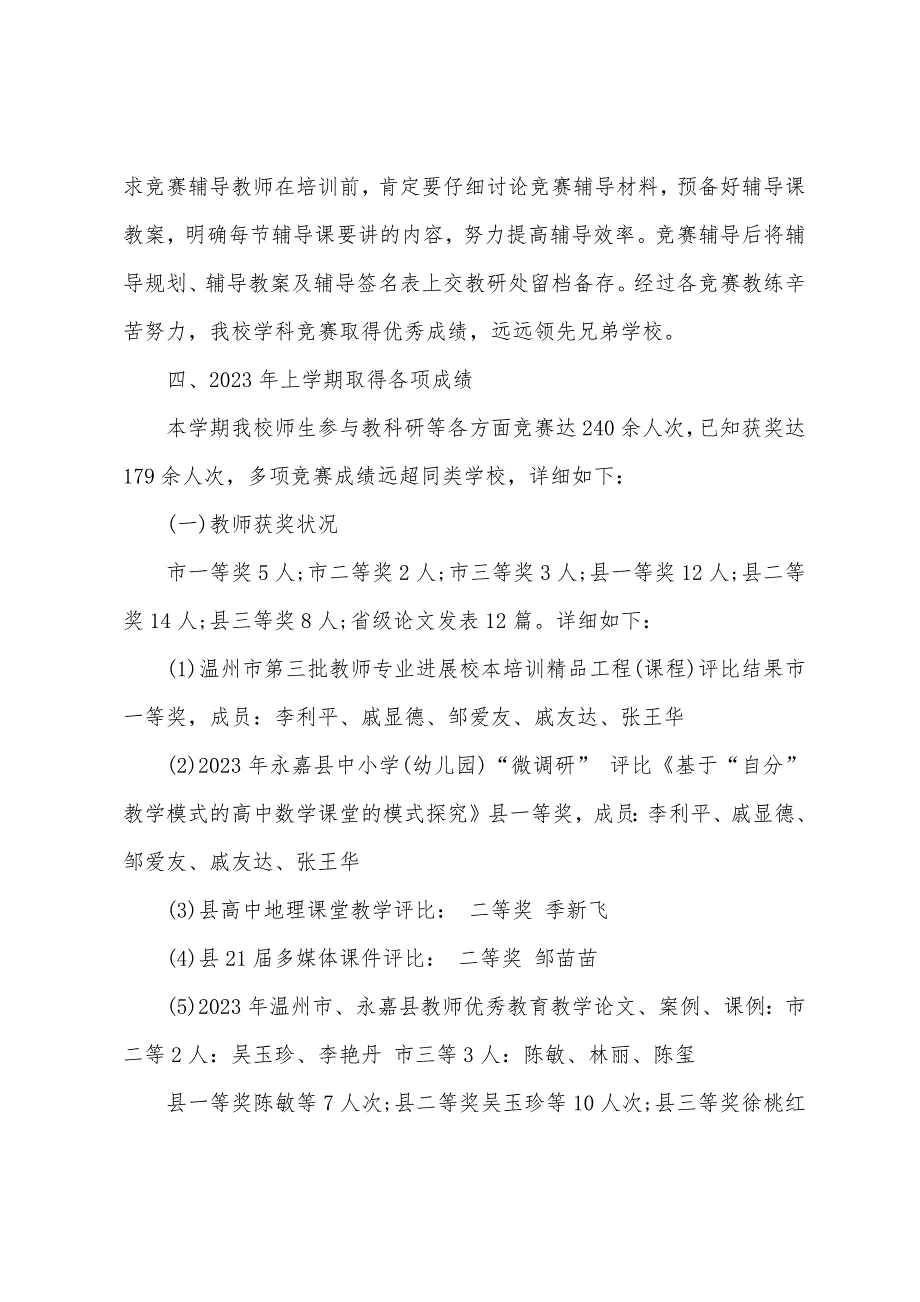 求竞赛辅导教师在培训前，肯定要仔细讨论竞赛辅导材料，预备好辅导课
教案，明确每节辅导课要讲的内容，努力提高辅导效率。竞赛辅导后将辅
导规划、辅导教案及辅导签名表上交教研处留档备存。经过各竞赛教练辛
苦努力，我校学科竞赛取得优秀成绩，远远领先兄弟学校。
四、2023 年上学期取得各项成绩
本学期我校师生参与教科研等各方面竞赛达 240 余人次，已知获奖达
179 余人次，多项竞赛成绩远超同类学校，详细如下：
(一)教师获奖状况
市一等奖 5 人;市二等奖 2 人;市三等奖 3 人;县一等奖 12 人;县二等
奖 14 人;县三等奖 8 人;省级论文发表 12 篇。详细如下：
(1)温州市第三批教师专业进展校本培训精品工程(课程)评比结果市
一等奖，成员：李利平、戚显德、邹爱友、戚友达、张王华
(2)2023 年永嘉县中小学(幼儿园)“微调研” 评比《基于“自分”
教学模式的高中数学课堂的模式探究》县一等奖，成员：李利平、戚显德、
邹爱友、戚友达、张王华
(3)县高中地理课堂教学评比： 二等奖 季新飞
(4)县 21 届多媒体课件评比： 二等奖 邹苗苗
(5)2023 年温州市、永嘉县教师优秀教育教学论文、案例、课例：市
二等 2 人：吴玉珍、李艳丹 市三等 3 人：陈敏、林丽、陈玺
县一等奖陈敏等 7 人次;县二等奖吴玉珍等 10 人次;县三等奖徐桃红